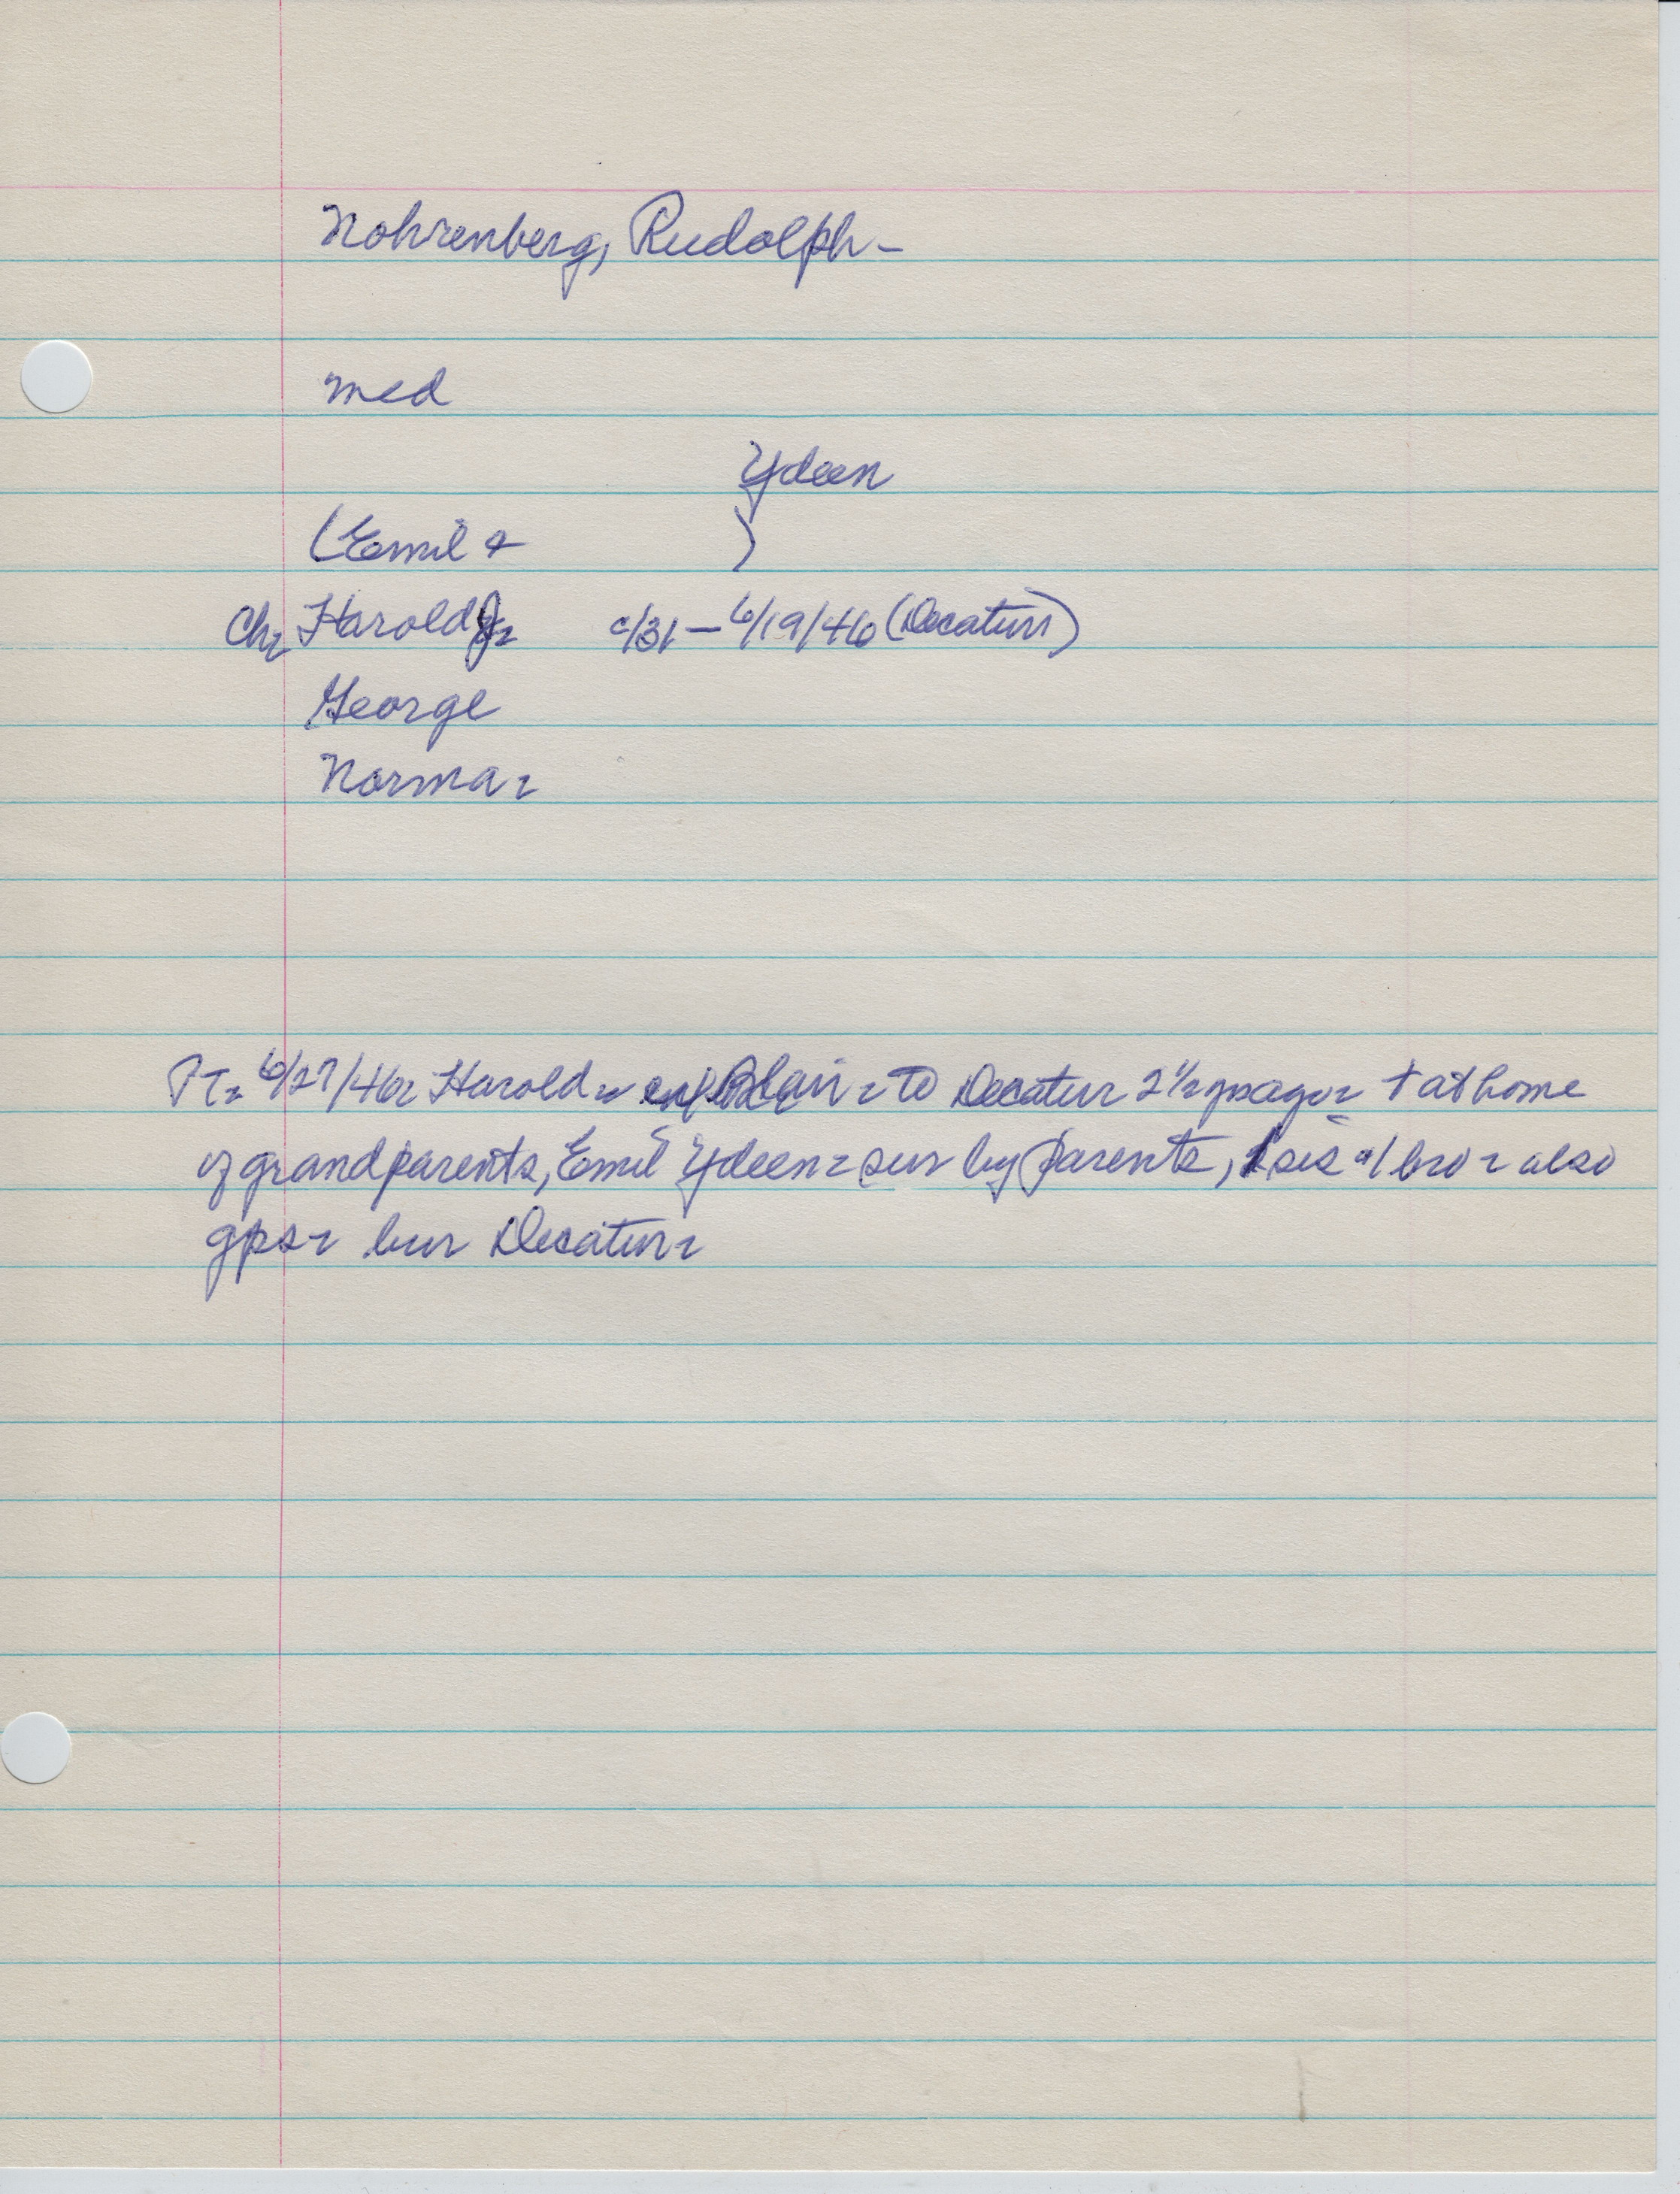 Nohrenberg, Rudolph -
med
Ydeen
(Emil & )
Ch. Harold c/31 - 6/19/46 (Decatur)
George
Norma.
PT. 6/27/46. Harold. Blair. to Decatur 2 1/2 yrs ago. + at home
of grandparents, Emil Ydeen. sur by parents, 1 sis & 1 bro. also
gps. bur Decatur.